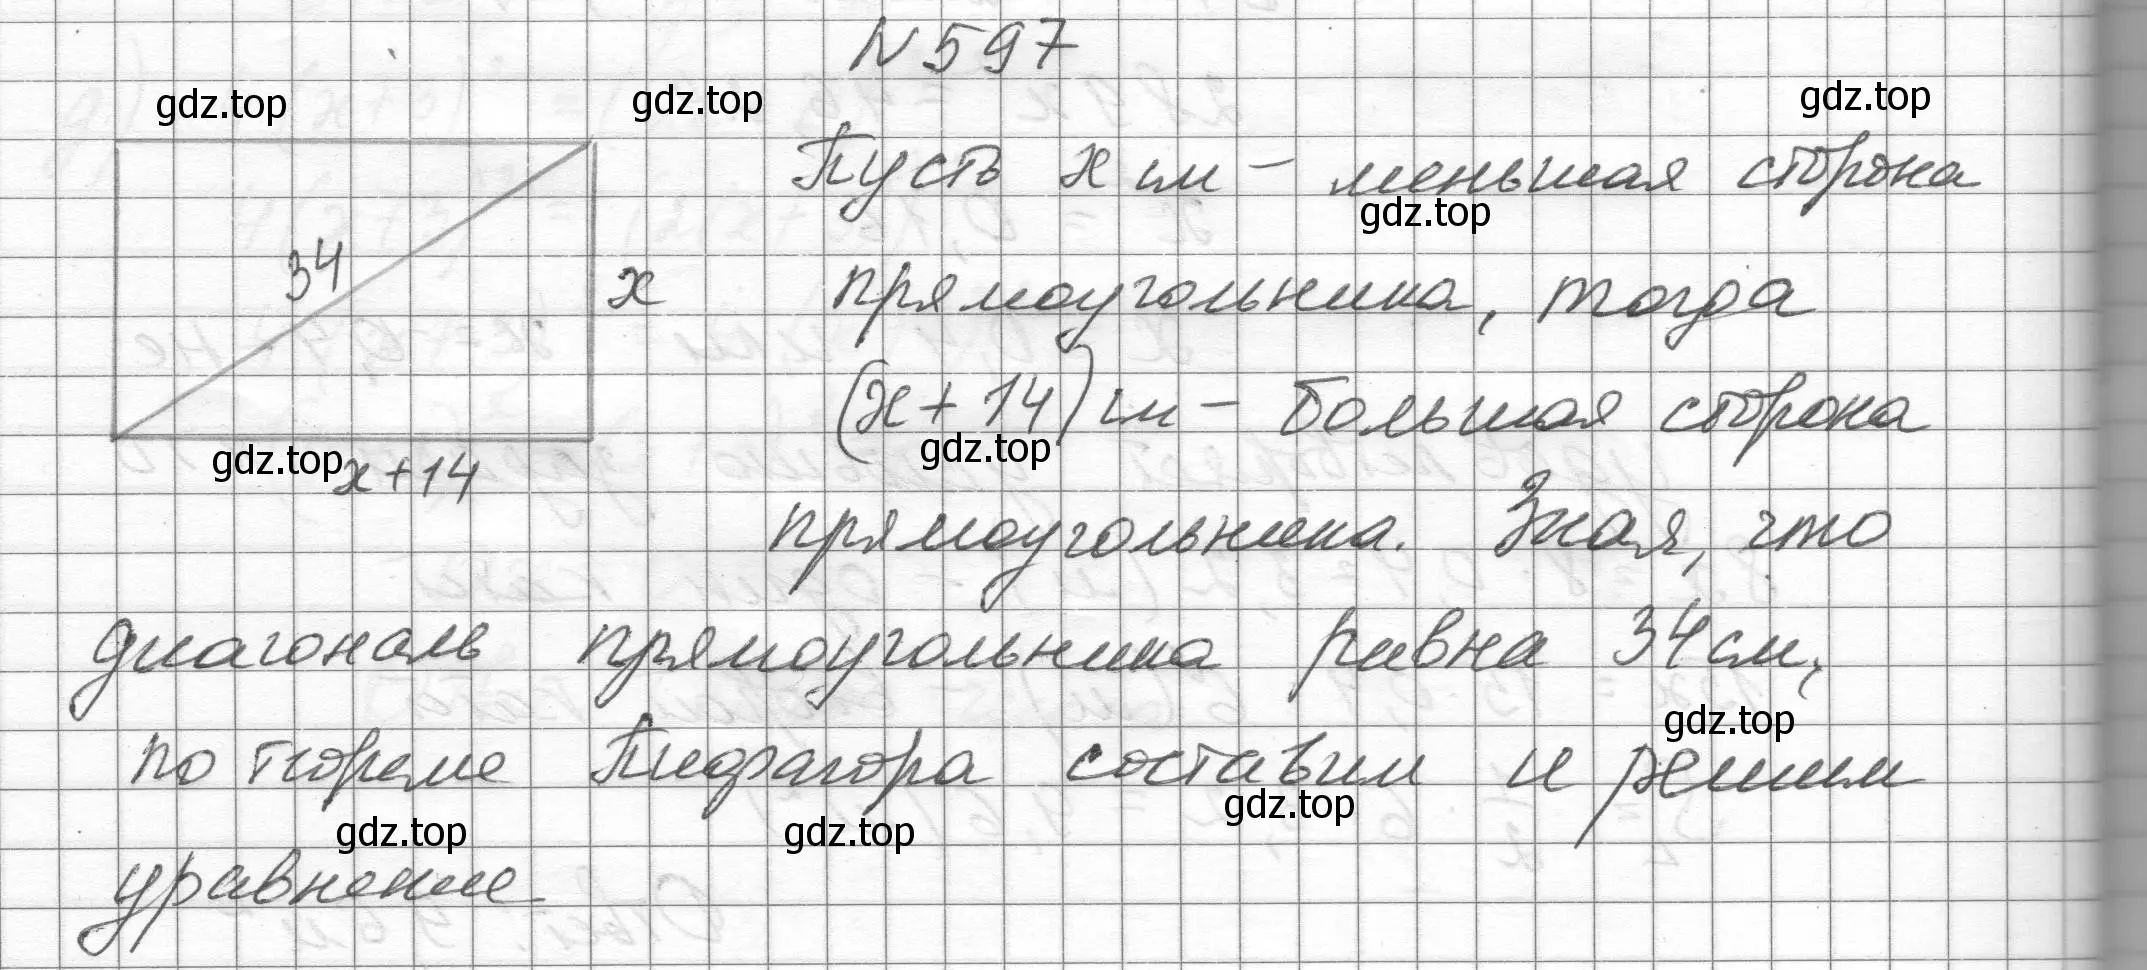 N 597
gdz.top
gdz.top
gdz.top
Пусть x см – меньшая сторона
gdz.top
34
x
прямоугольника, тогда
(x + 14) см – большая сторона
gdz.top
gdz.top
x + 14
прямоугольника. Зная, что
диагональ прямоугольника равна 34 см,
gdz.top
по теореме Пифагора составим и решим
gdz.top
gdz.top
gdz.top
уравнение